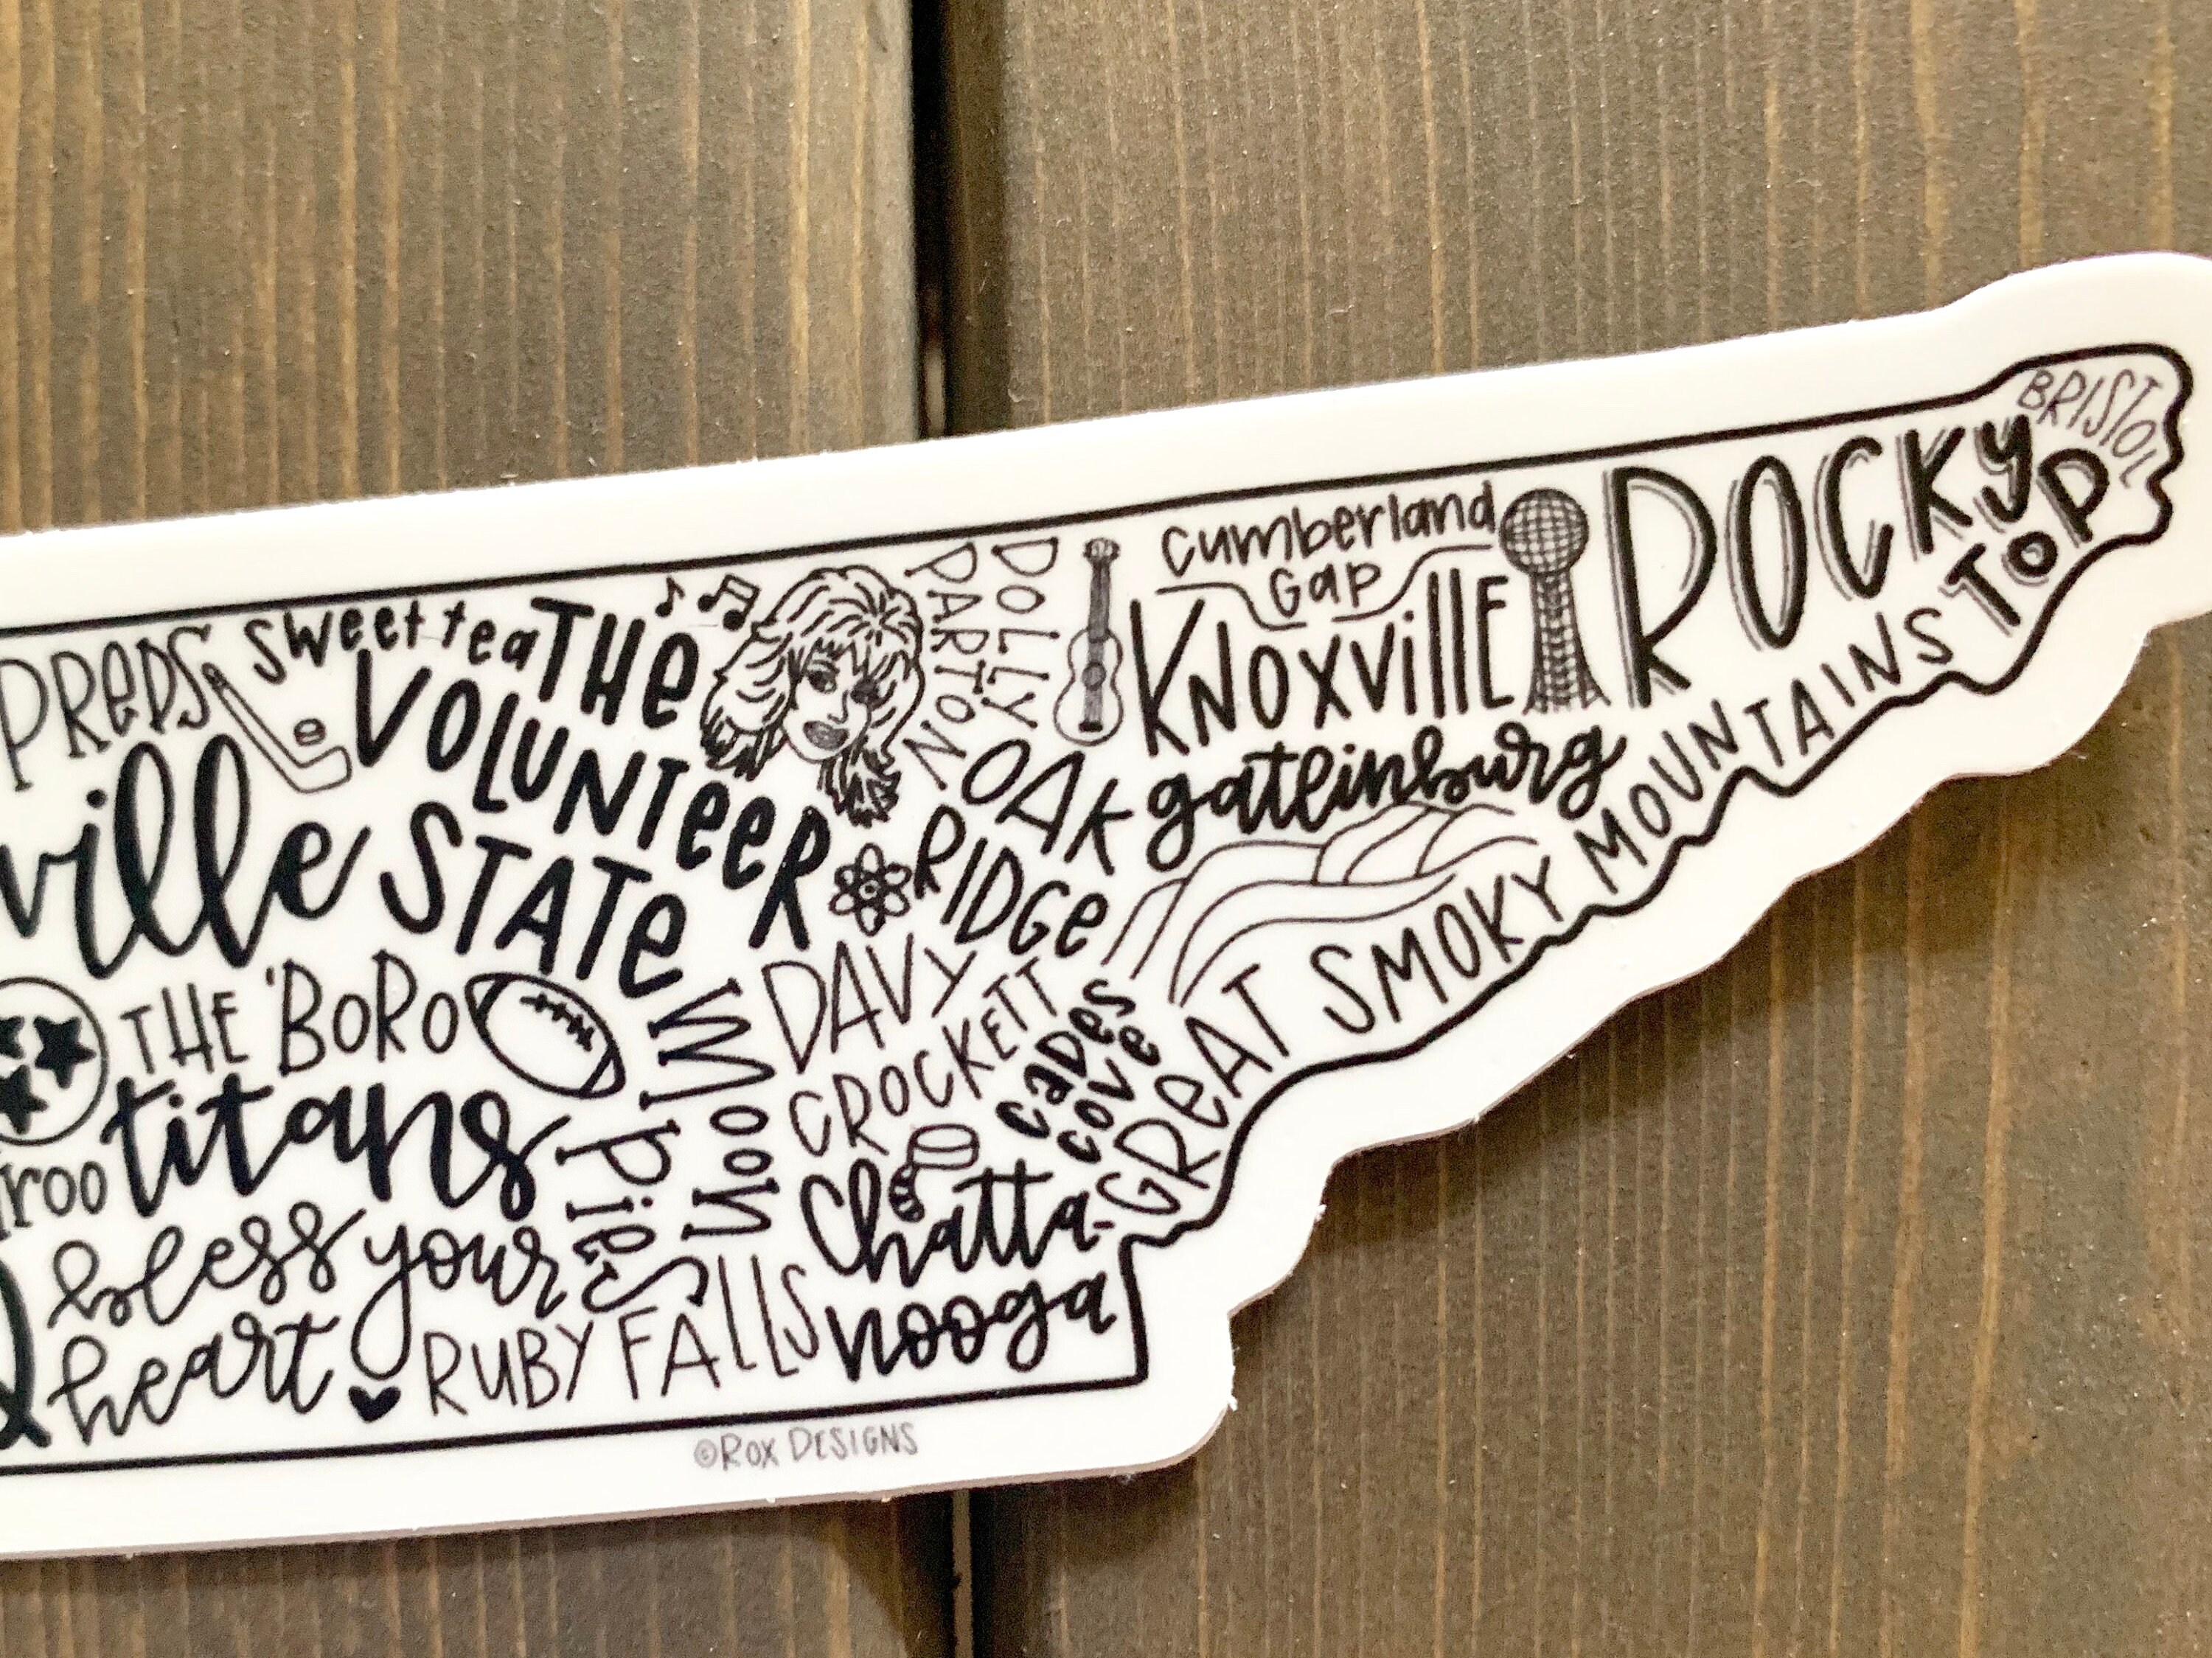 BRISTOL
ROCKY
TOP
Cumberland
Gap
KNOXVIllE
DOLLY
PARTON
sweet tea
PREDS
THe
VOLUNTeeR
STATe
ville
OAK
RIDGe
gatlinburg
GREAT SMOKY MOUNTAINS
DAVY
CROCKETT
caDes
cove
THE 'BORO
titans
roo
Moon
Pies
bless your
heart
RUBY FALLS
Chatta-
nooga
©ROX DESIGNS